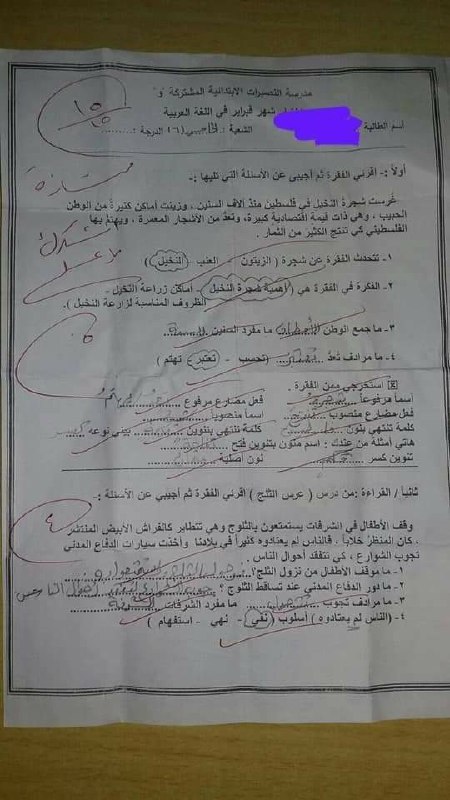 مدرسة النصيرات الابتدائية المشتركة "و"
شهر فبراير في اللغة العربية
اسم الطالبة
الشعبة : الخامس (٦) الدرجة : ..........
١٥
١٥
ممتازة
أولاً :- اقرئي الفقرة ثم أجيبي عن الأسئلة التي تليها :-
غُرست شجرة النخيل في فلسطين منذ آلاف السنين ، وزينت أماكن كثيرةً من الوطن
الحبيب ، وهي ذات قيمة اقتصادية كبيرة، وتعدُّ من الأشجار المعمرة ، ويهتمُ بها
الفلسطيني كي تنتج الكثير من الثمار .
١- تتحدث الفقرة عن شجرة ( الزيتون - العنب - النخيل )
٢- الفكرة في الفقرة هي ( أهمية شجرة النخيل - أماكن زراعة النخيل -
الظروف المناسبة لزراعة النخيل ).
٣- ما جمع الوطن الأوطان ما مفرد السنين السنة
٤- ما مرادف تعدُّ ( تحسب - تعتبر - تهتم )
استخرجي من الفقرة .
اسماً مرفوعاً فعل مضارع مرفوع
فعل مضارع منصوب اسماً منصوباً
كلمة تنتهي بنون كلمة تنتهي بتنوين بيني نوعه كسر
هاتي أمثلة من عندك : اسم منون بتنوين فتح
تنوين كسر نون أصلية
ثانياً / القراءة :من درس ( عرس الثلج ) اقرئي الفقرة ثم أجيبي عن الأسئلة :-
٤
وقف الأطفال في الشرفات يستمتعون بالثلوج وهي تتطاير كالفراش الأبيض المنتشر
، كان المنظر خلاباً . فالناس لم يعتادوه كثيراً في بلادنا وأخذت سيارات الدفاع المدني
تجوب الشوارع ، كي تتفقد أحوال الناس .
١- ما موقف الأطفال من نزول الثلج؟
٢- ما دور الدفاع المدني عند تساقط الثلوج ؟
٣- ما مرادف تجوب ما مفرد الشرفات الشرفة
٤- (الناس لم يعتادوه ) أسلوب ( نفي - نهي - استفهام )